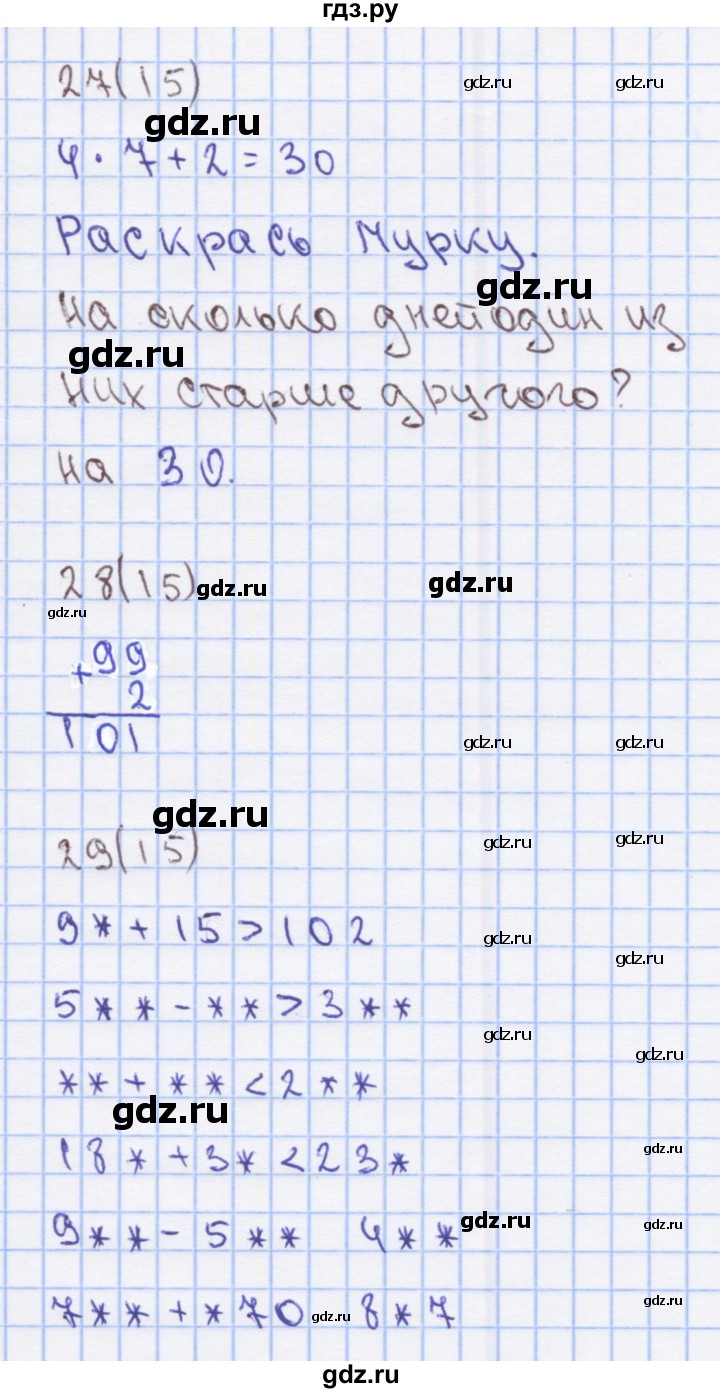 гдз.ру
27(15)
gdz.ru gdz.ru
gdz.ru
4·7+2=30
Раскрась Мурку.
gdz.ru
На сколько дней один из
gdz.ru
них старше другого?
на 30.
28(15)
gdz.ru gdz.ru
gdz.ru
+99
2
101
gdz.ru gdz.ru
gdz.ru
29(15)
gdz.ru gdz.ru
9*+15>102
gdz.ru
gdz.ru
5**-**>3**
gdz.ru
gdz.ru
**+**<2**
gdz.ru
18*+3*<23*
gdz.ru
9**-5** 4**
gdz.ru gdz.ru
7**+*70 8*7
gdz.ru gdz.ru
gdz.ru